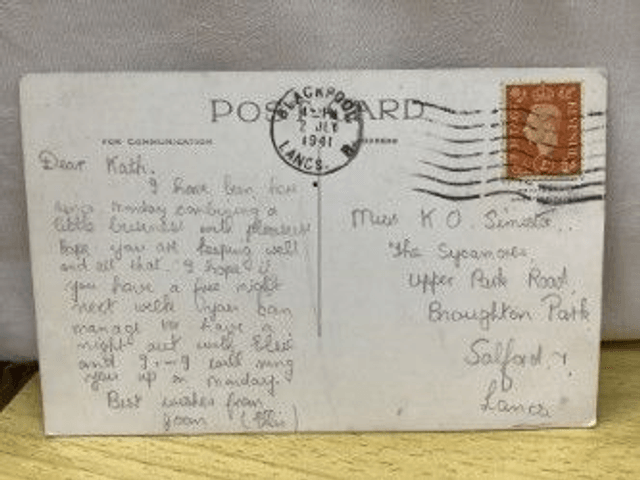 POST CARD
FOR COMMUNICATION
BLACKPOOL
2 JLY
1941
LANCS.
Dear Kath.
I have been here
since Monday combining a
little business with pleasure
hope you are keeping well
and all that. I hope
you have a free night
next week when you can
manage to have a
night out with Elsie
and I will ring
you up on Monday.
Best wishes from
Miss K O.
The Sycamores
Upper Park Road
Broughton Park
Salford.
Lancs